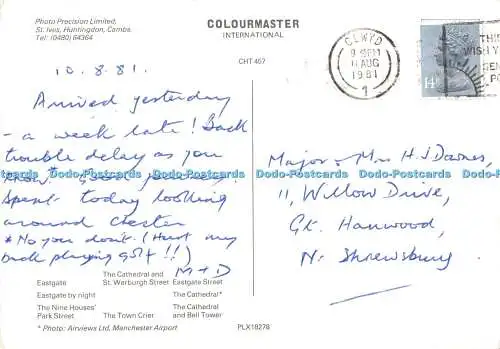 Photo Precision Limited,
St. Ives, Huntingdon, Cambs.
Tel: (0480) 64364
COLOURMASTER
INTERNATIONAL
CHT 457
CLWYD
11 AUG
1981
1
14P
10.8.81.
Arrived yesterday
- a week late! Back
trouble delay as you
know*. Good journey.
Spent today looking
around Chester
* No you don't. (Hurt my
back playing golf!!)
M + D
Major & Mrs H J Downes,
11, Willow Drive,
Gt. Hanwood,
Nr. Shrewsbury
Dodo-Postcards Dodo-Postcards Dodo-Postcards Dodo-Postcards Dodo-Postcards
The Cathedral and
Eastgate St. Werburgh Street Eastgate Street
Eastgate by night The Cathedral*
The Nine Houses' The Cathedral
Park Street The Town Crier and Bell Tower
* Photo: Airviews Ltd, Manchester Airport
PLX18278